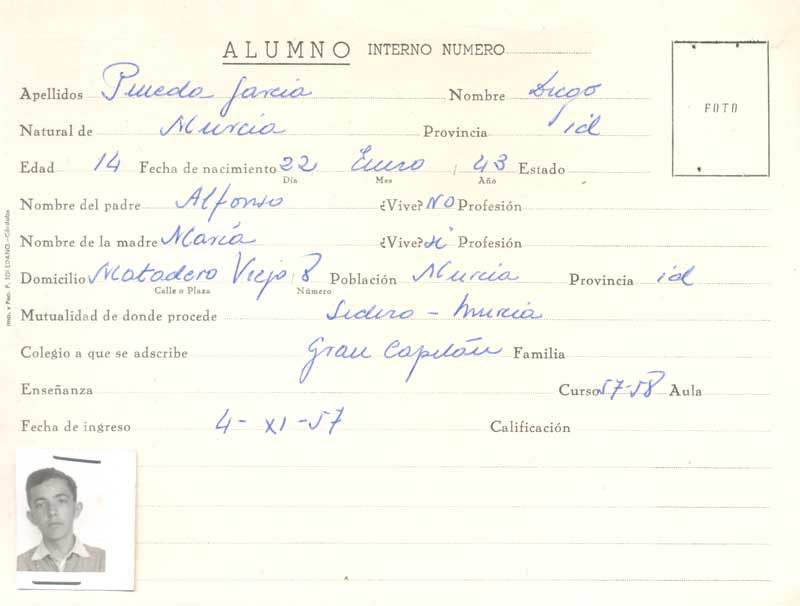 ALUMNO INTERNO NUMERO
FOTO
Apellidos Pineda García Nombre Diego
Natural de Murcia Provincia id
Edad 14 Fecha de nacimiento 22 Enero / 43 Estado
Día Mes Año
Nombre del padre Alfonso ¿Vive? NO Profesión
Nombre de la madre María ¿Vive? sí Profesión
Domicilio Matadero Viejo, 8 Población Murcia Provincia id
Calle o Plaza Número
Mutualidad de donde procede Sidero - Murcia
Colegio a que se adscribe Gran Capitán Familia
Enseñanza Curso 57-58 Aula
Fecha de ingreso 4-XI-57 Calificación
Imp. y Pap. F. TOLEDANO.-Córdoba